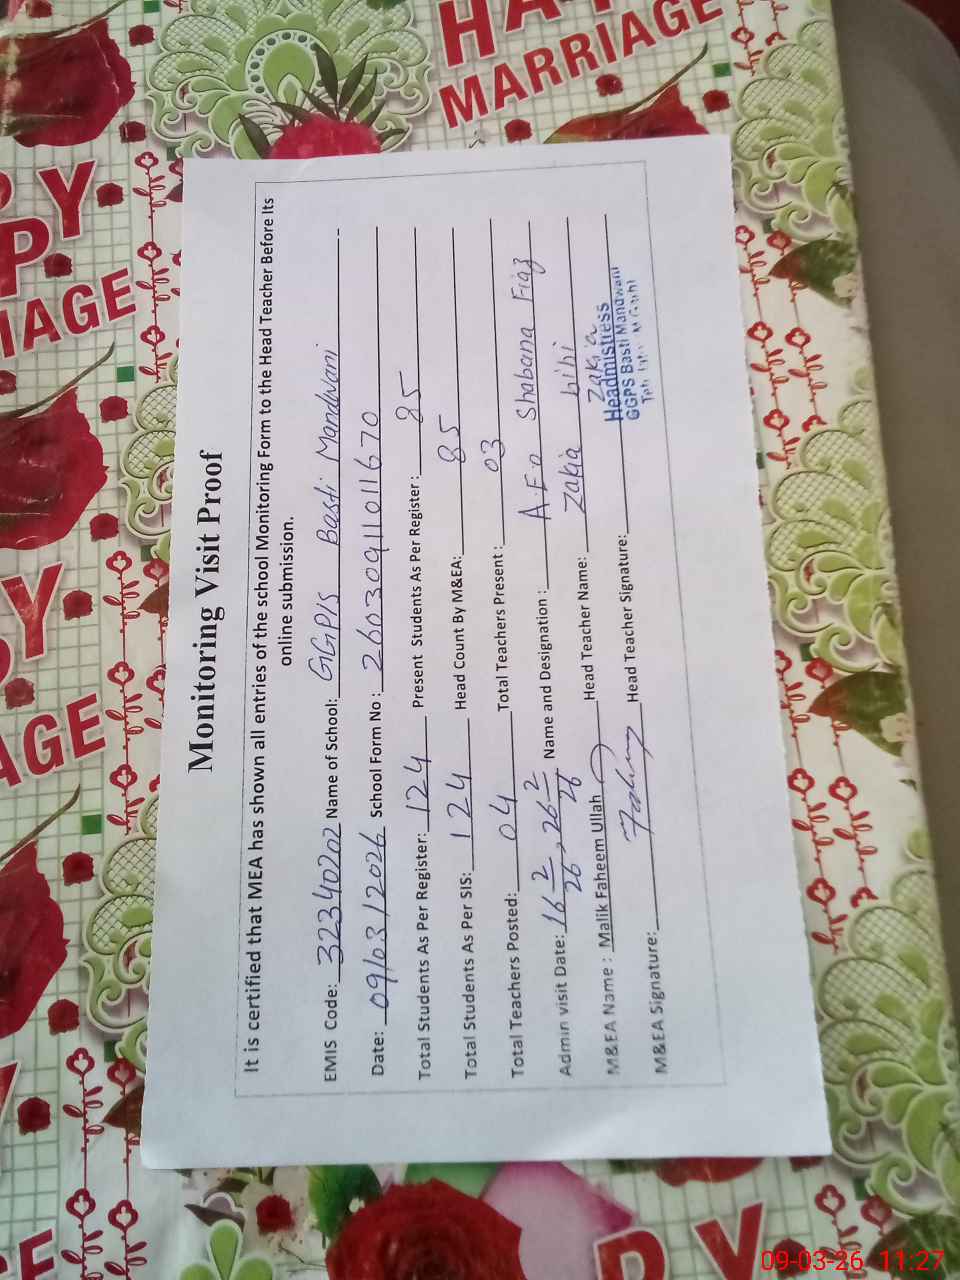 Monitoring Visit Proof
It is certified that MEA has shown all entries of the school Monitoring Form to the Head Teacher Before Its
online submission.
EMIS Code: 32340202 Name of School: GGP/S Basti Mandwani
Date: 09/03/2026 School Form No : 260309110111670
Total Students As Per Register: 124 Present Students As Per Register : 85
Total Students As Per SIS: 124 Head Count By M&EA: 85
Total Teachers Posted: 04 Total Teachers Present : 03
Admin visit Date: 16 2/26, 26 2/26 Name and Designation : A.E.O Shabana Fiaz
M&EA Name : Malik Faheem Ullah Head Teacher Name: Zakia bibi
M&EA Signature: Head Teacher Signature: Zakia
Headmistress
GGPS Basti Mandwani
HA
MARRIAGE
PY
RIAGE
Y
AGE
E
PY
09-03-26 11:27